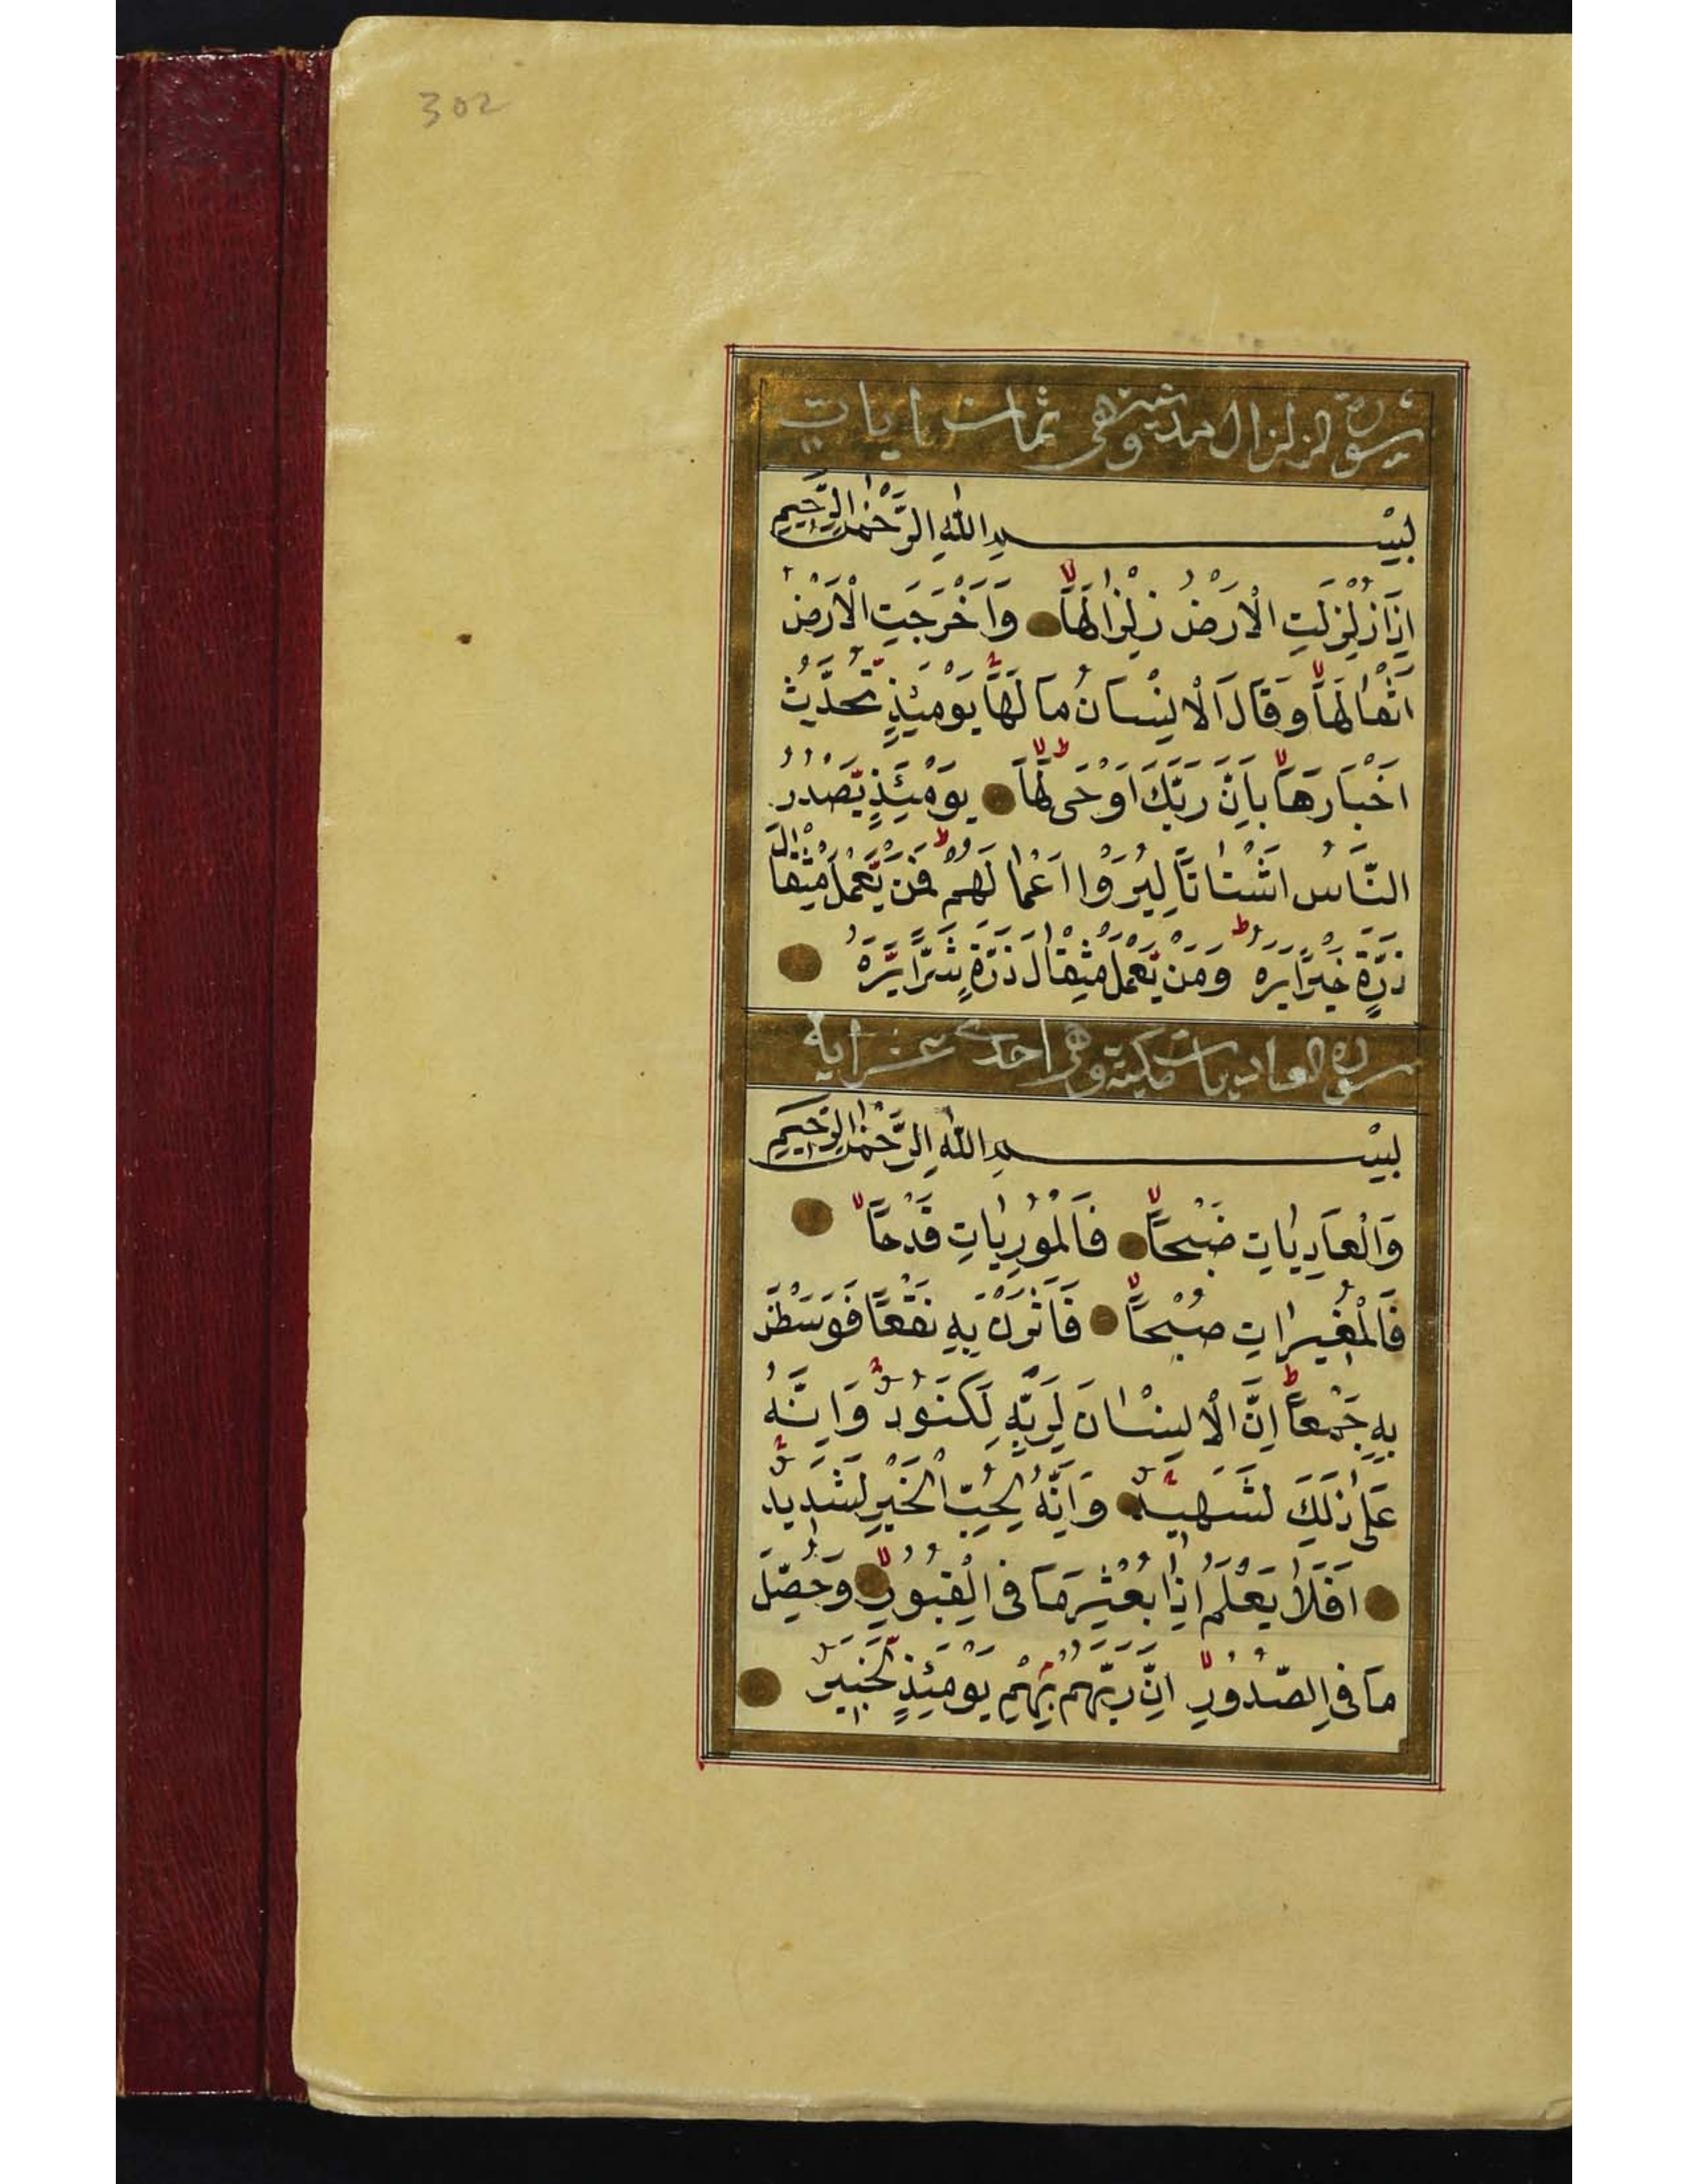 302
سورة الزلزال مدنية وهى ثمان ايات
بِسْمِ اللّٰهِ الرَّحْمٰنِ الرَّحِيمِ
اِذَا زُلْزِلَتِ الْاَرْضُ زِلْزَالَهَا وَاَخْرَجَتِ الْاَرْضُ
اَثْقَالَهَا وَقَالَ الْاِنْسَانُ مَا لَهَا يَوْمَئِذٍ تُحَدِّثُ
اَخْبَارَهَا بِاَنَّ رَبَّكَ اَوْحٰى لَهَا يَوْمَئِذٍ يَصْدُرُ
النَّاسُ اَشْتَاتًا لِيُرَوْا اَعْمَالَهُمْ فَمَنْ يَعْمَلْ مِثْقَالَ
ذَرَّةٍ خَيْرًا يَرَهُ وَمَنْ يَعْمَلْ مِثْقَالَ ذَرَّةٍ شَرًّا يَرَهُ
سورة العاديات مكية وهى احدى عشر اية
بِسْمِ اللّٰهِ الرَّحْمٰنِ الرَّحِيمِ
وَالْعَادِيَاتِ ضَبْحًا فَالْمُورِيَاتِ قَدْحًا
فَالْمُغِيرَاتِ صُبْحًا فَاَثَرْنَ بِهِ نَقْعًا فَوَسَطْنَ
بِهِ جَمْعًا اِنَّ الْاِنْسَانَ لِرَبِّهِ لَكَنُودٌ وَاِنَّهُ
عَلٰى ذٰلِكَ لَشَهِيدٌ وَاِنَّهُ لِحُبِّ الْخَيْرِ لَشَدِيدٌ
اَفَلَا يَعْلَمُ اِذَا بُعْثِرَ مَا فِى الْقُبُورِ وَحُصِّلَ
مَا فِى الصُّدُورِ اِنَّ رَبَّهُمْ بِهِمْ يَوْمَئِذٍ لَخَبِيرٌ